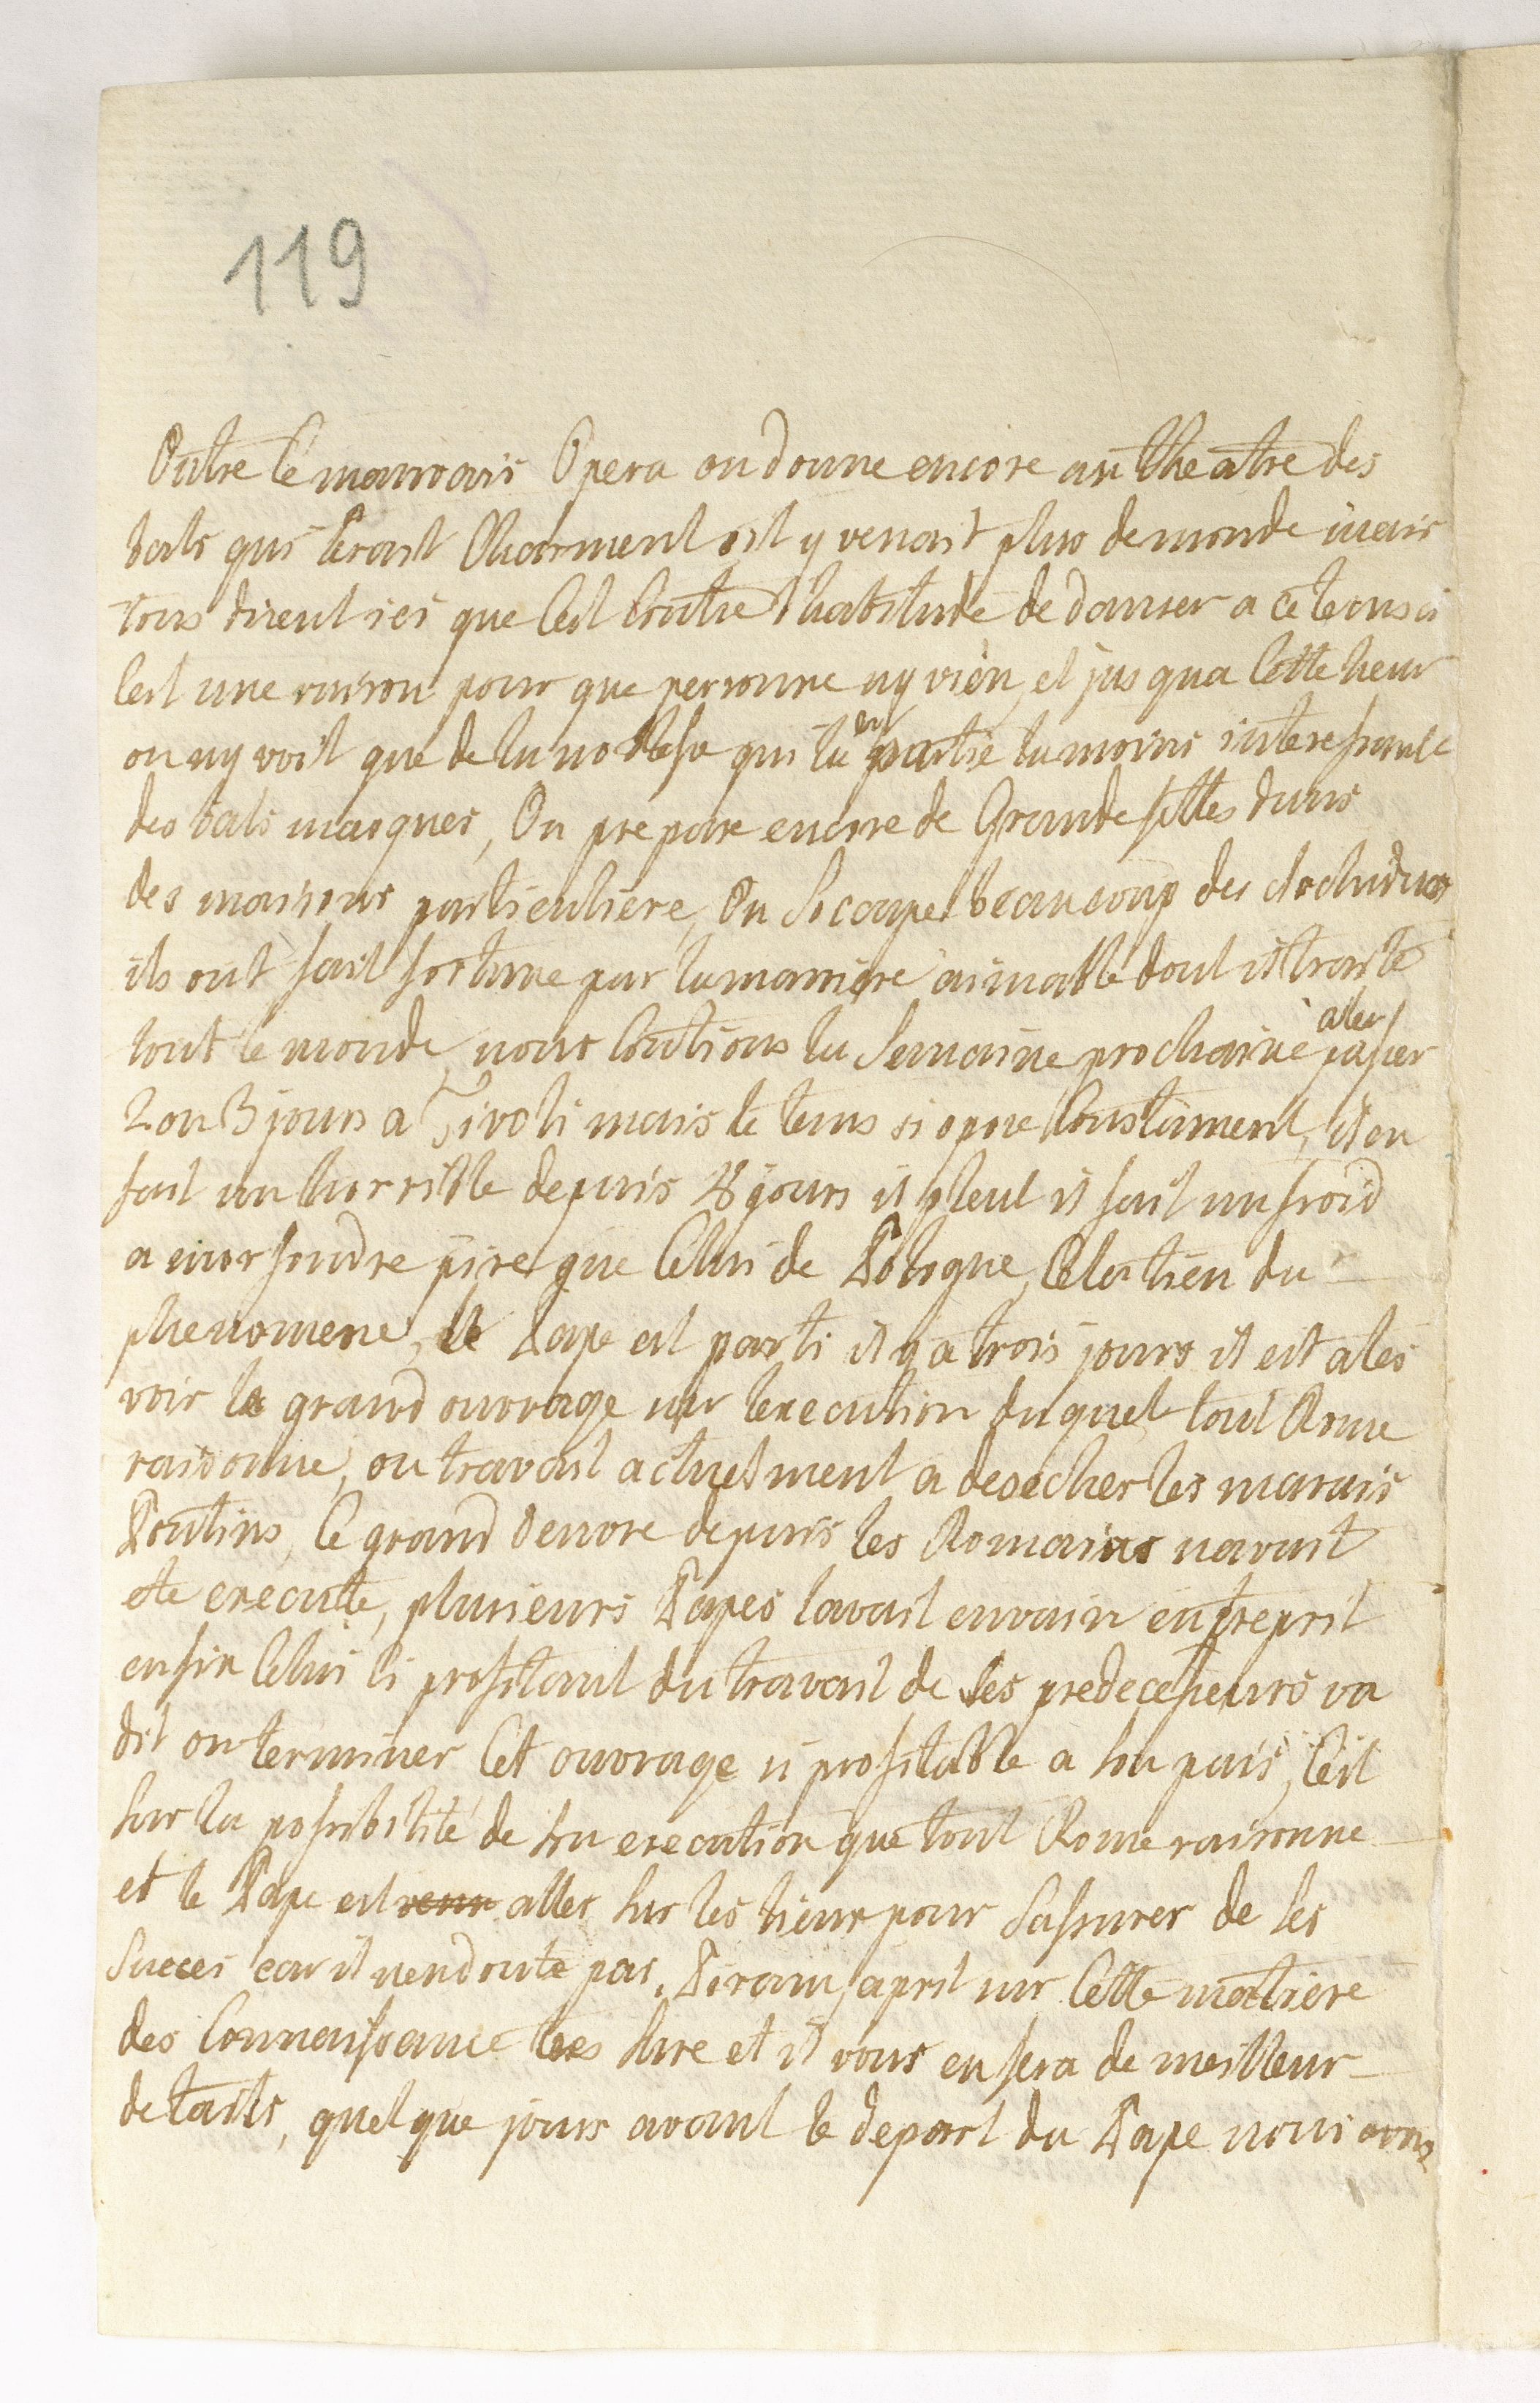 119
Outre le mauvais Opera on donne encore au theatre des
bals qui serait Charment sil y venait plus de monde mais
tous disent ici que Cest Contre l'habitude de danser a ce tems ci
Cest une raison pour que personne ny vien, et jusqua Cette heur
on ny voit que de la noblesse qui la est partie la moins interessante
des bals masques, On prepare encore de Grande fettes dans
des maisons particuliere, On Socupe beaucoup des Archiducs
ils ont fait fortune par la maniere aimable dont il traite
tout le monde, nous Contions la Semaine prochaine aler passer
2 ou 3 jours a Tivoli mais le tems si opose Constament, il en
fait un horrible depuis 8 jours il pleut il fait un froid
a morfondre pire que Celui de Pologne, Cela tien du
phenomene, le Pape est parti il y a trois jours il est ales
voir le grand ouvrage sur lexecution duquel tout Rome
raisonne, on travail actuelment a desecher les marais
Pontins, Ce grand oeuvre depuis les Romains navait
ete execute, plusieurs Papes lavait envain entreprit
enfin Celui ci profitant du travail de Ses predecesseurs va
dit on terminer Cet ouvrage si profitable a son pais, Cest
Sur la possibilité de son execution que tout Rome raisonne
et le Pape est venu aller Sur les lieux pour Sassurer de Ses
Succes car il nen doute pas. Piram  a prit sur Cette matiere
des Connaissance tres Sure et il vous en fera de meilleur
details, quelque jours avant le depart du Pape nous avons